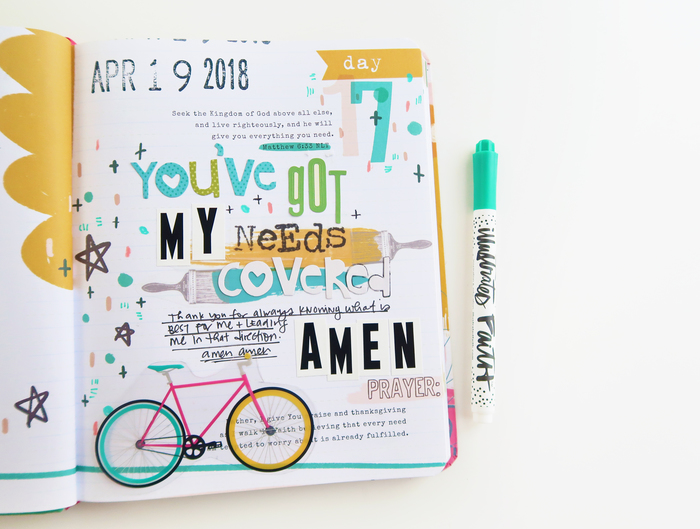 APR 19 2018
day
17
Seek the Kingdom of God above all else,
and live righteously, and he will
give you everything you need.
Matthew 6:33 NLT
YOU'VE GOT
MY NEEDS
COVERED
Thank you for always knowing what is
BEST for me + leading
me in that direction.
amen amen
AMEN
PRAYER:
ther, I give You raise and thanksgiving
walk faith believing that every need
ted to worry is already fulfilled.
illustrated Faith